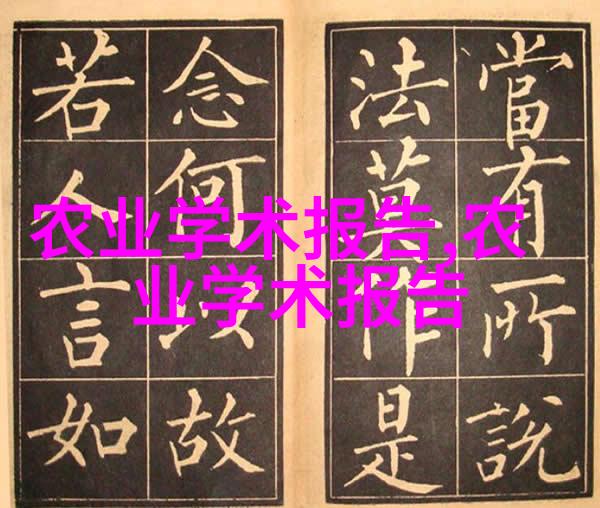 當有所說
法莫作是
念何以故
若人言如
农业学术报告,农
业学术报告